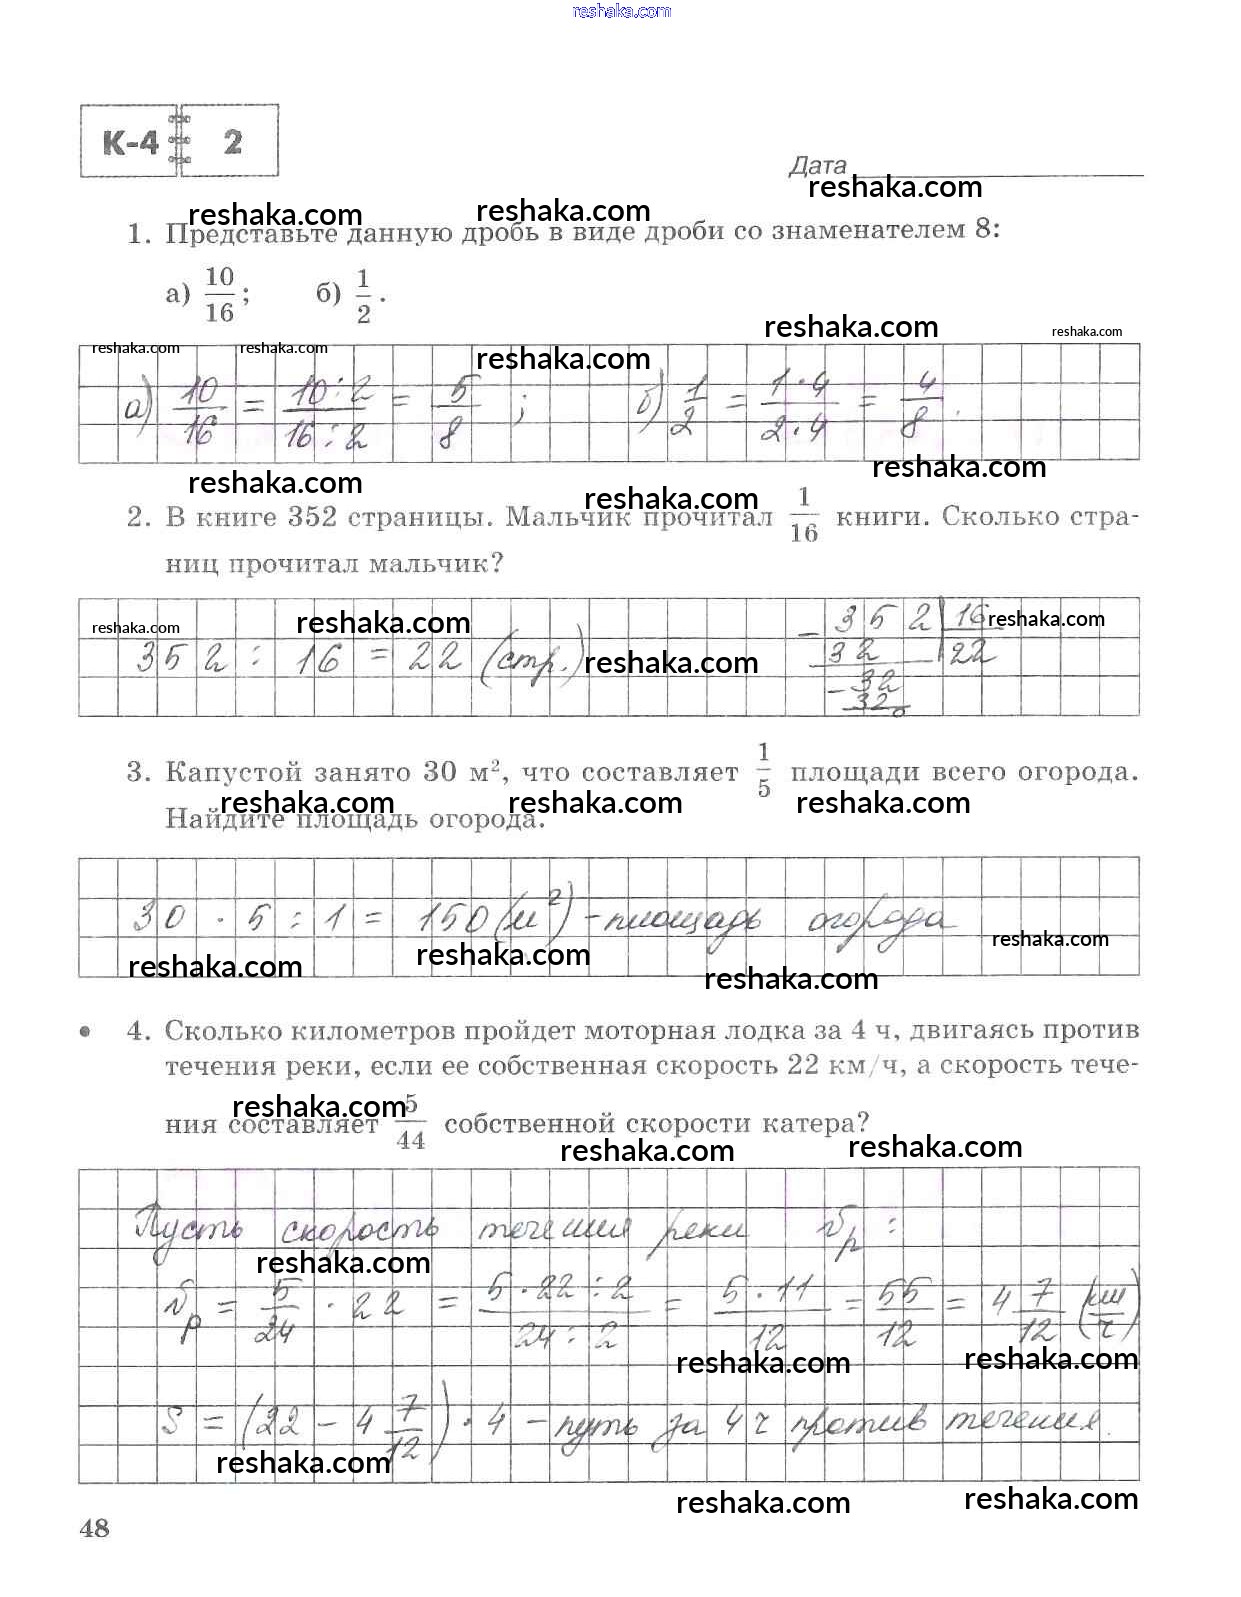 reshaka.com
К-4 2
Дата
reshaka.com
reshaka.com reshaka.com
1. Представьте данную дробь в виде дроби со знаменателем 8:
а) 10/16; б) 1/2.
reshaka.com reshaka.com
reshaka.com reshaka.com reshaka.com
а) 10/16 = 10:2/16:2 = 5/8; б) 1/2 = 1·4/2·4 = 4/8.
reshaka.com
reshaka.com reshaka.com
2. В книге 352 страницы. Мальчик прочитал 1/16 книги. Сколько стра-
ниц прочитал мальчик?
reshaka.com reshaka.com reshaka.com
352 : 16 = 22 (стр.) reshaka.com
− 352 | 16
32 22
− 32
32
0
3. Капустой занято 30 м², что составляет 1/5 площади всего огорода.
reshaka.com reshaka.com reshaka.com
Найдите площадь огорода.
30 · 5 : 1 = 150 (м²) - площадь огорода
reshaka.com reshaka.com reshaka.com
reshaka.com
• 4. Сколько километров пройдет моторная лодка за 4 ч, двигаясь против
течения реки, если ее собственная скорость 22 км/ч, а скорость тече-
reshaka.com
ния составляет 5/44 собственной скорости катера?
reshaka.com reshaka.com
Пусть скорость течения реки vр :
reshaka.com
vр = 5/24 · 22 = 5·22:2/24:2 = 5·11/12 = 55/12 = 4 7/12 (км/ч)
reshaka.com reshaka.com
S = (22 − 4 7/12) · 4 - путь за 4 ч против течения.
reshaka.com
reshaka.com reshaka.com
48